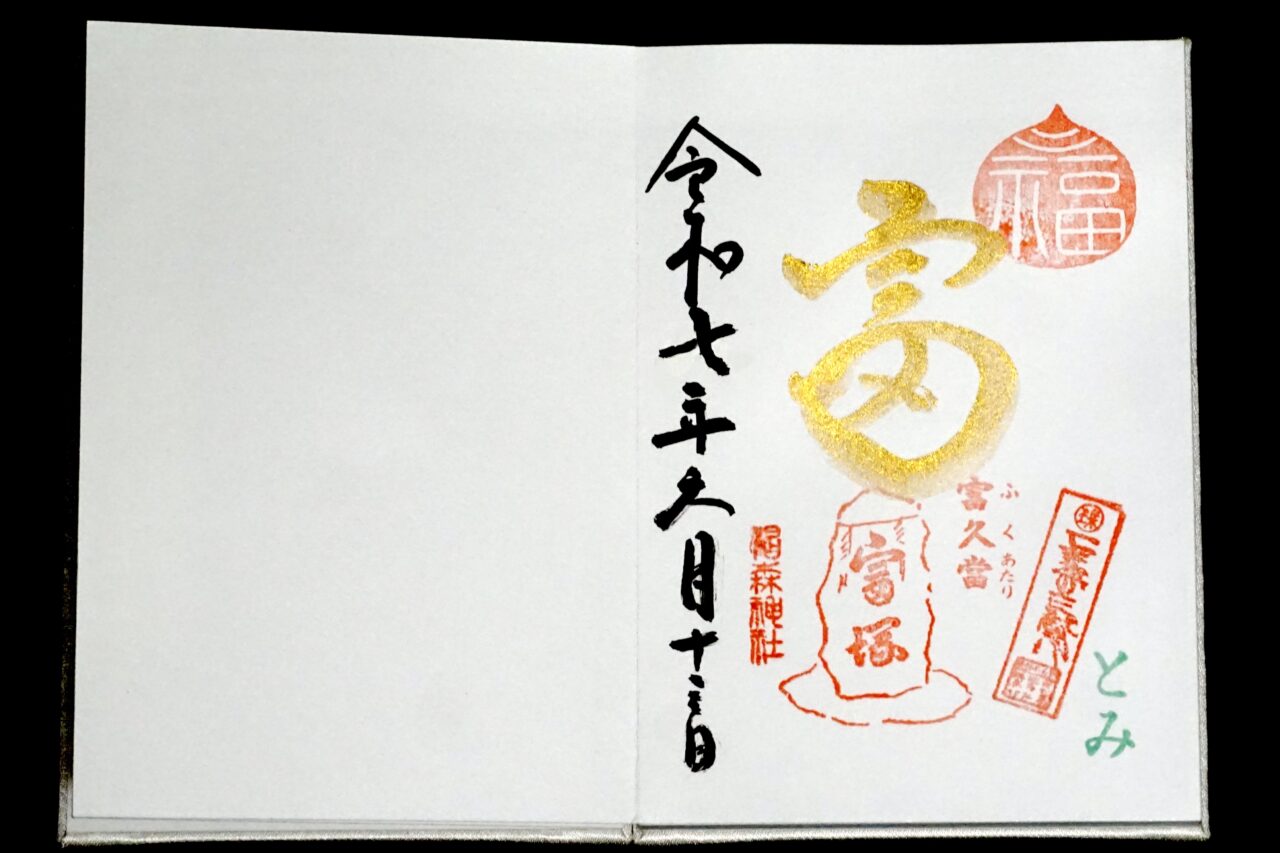 福
富
富久當
ふくあたり
富塚
とみ
椙森神社
令和七年六月十三日